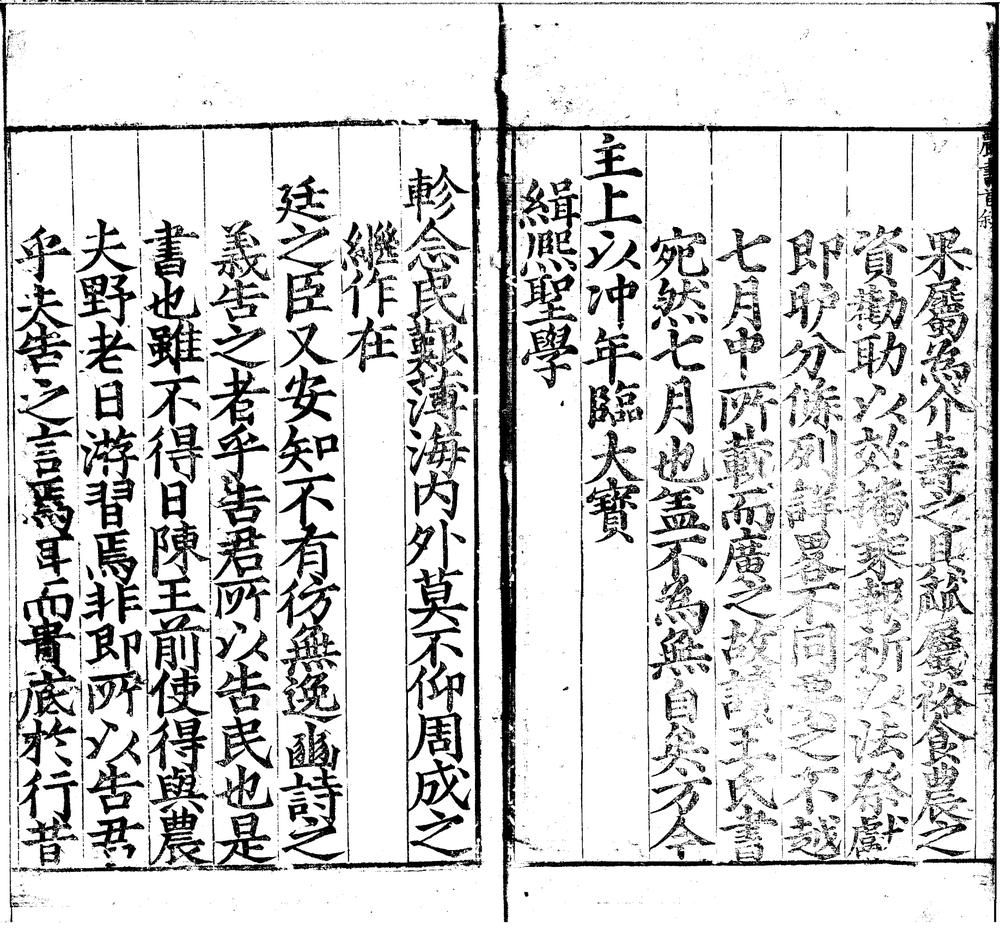 農書首敘
果屬為介壽之具瓠屬裕食農之
資勸助以效播琴報祈以法祭獻
即貯分條列詳畧不同要之不越
七月中所載而廣之故讀王氏書
宛然七月也盖不為無自矣方今
主上以冲年臨大寶
緝熈聖學
軫念民艱薄海内外莫不仰周成之
繼作在
廷之臣又安知不有彷無逸豳詩之
義告之者乎告君所以告民也是
書也雖不得日陳王前使得與農
夫野老日游習焉非即所以告君
乎夫告之言焉耳而貴底於行昔